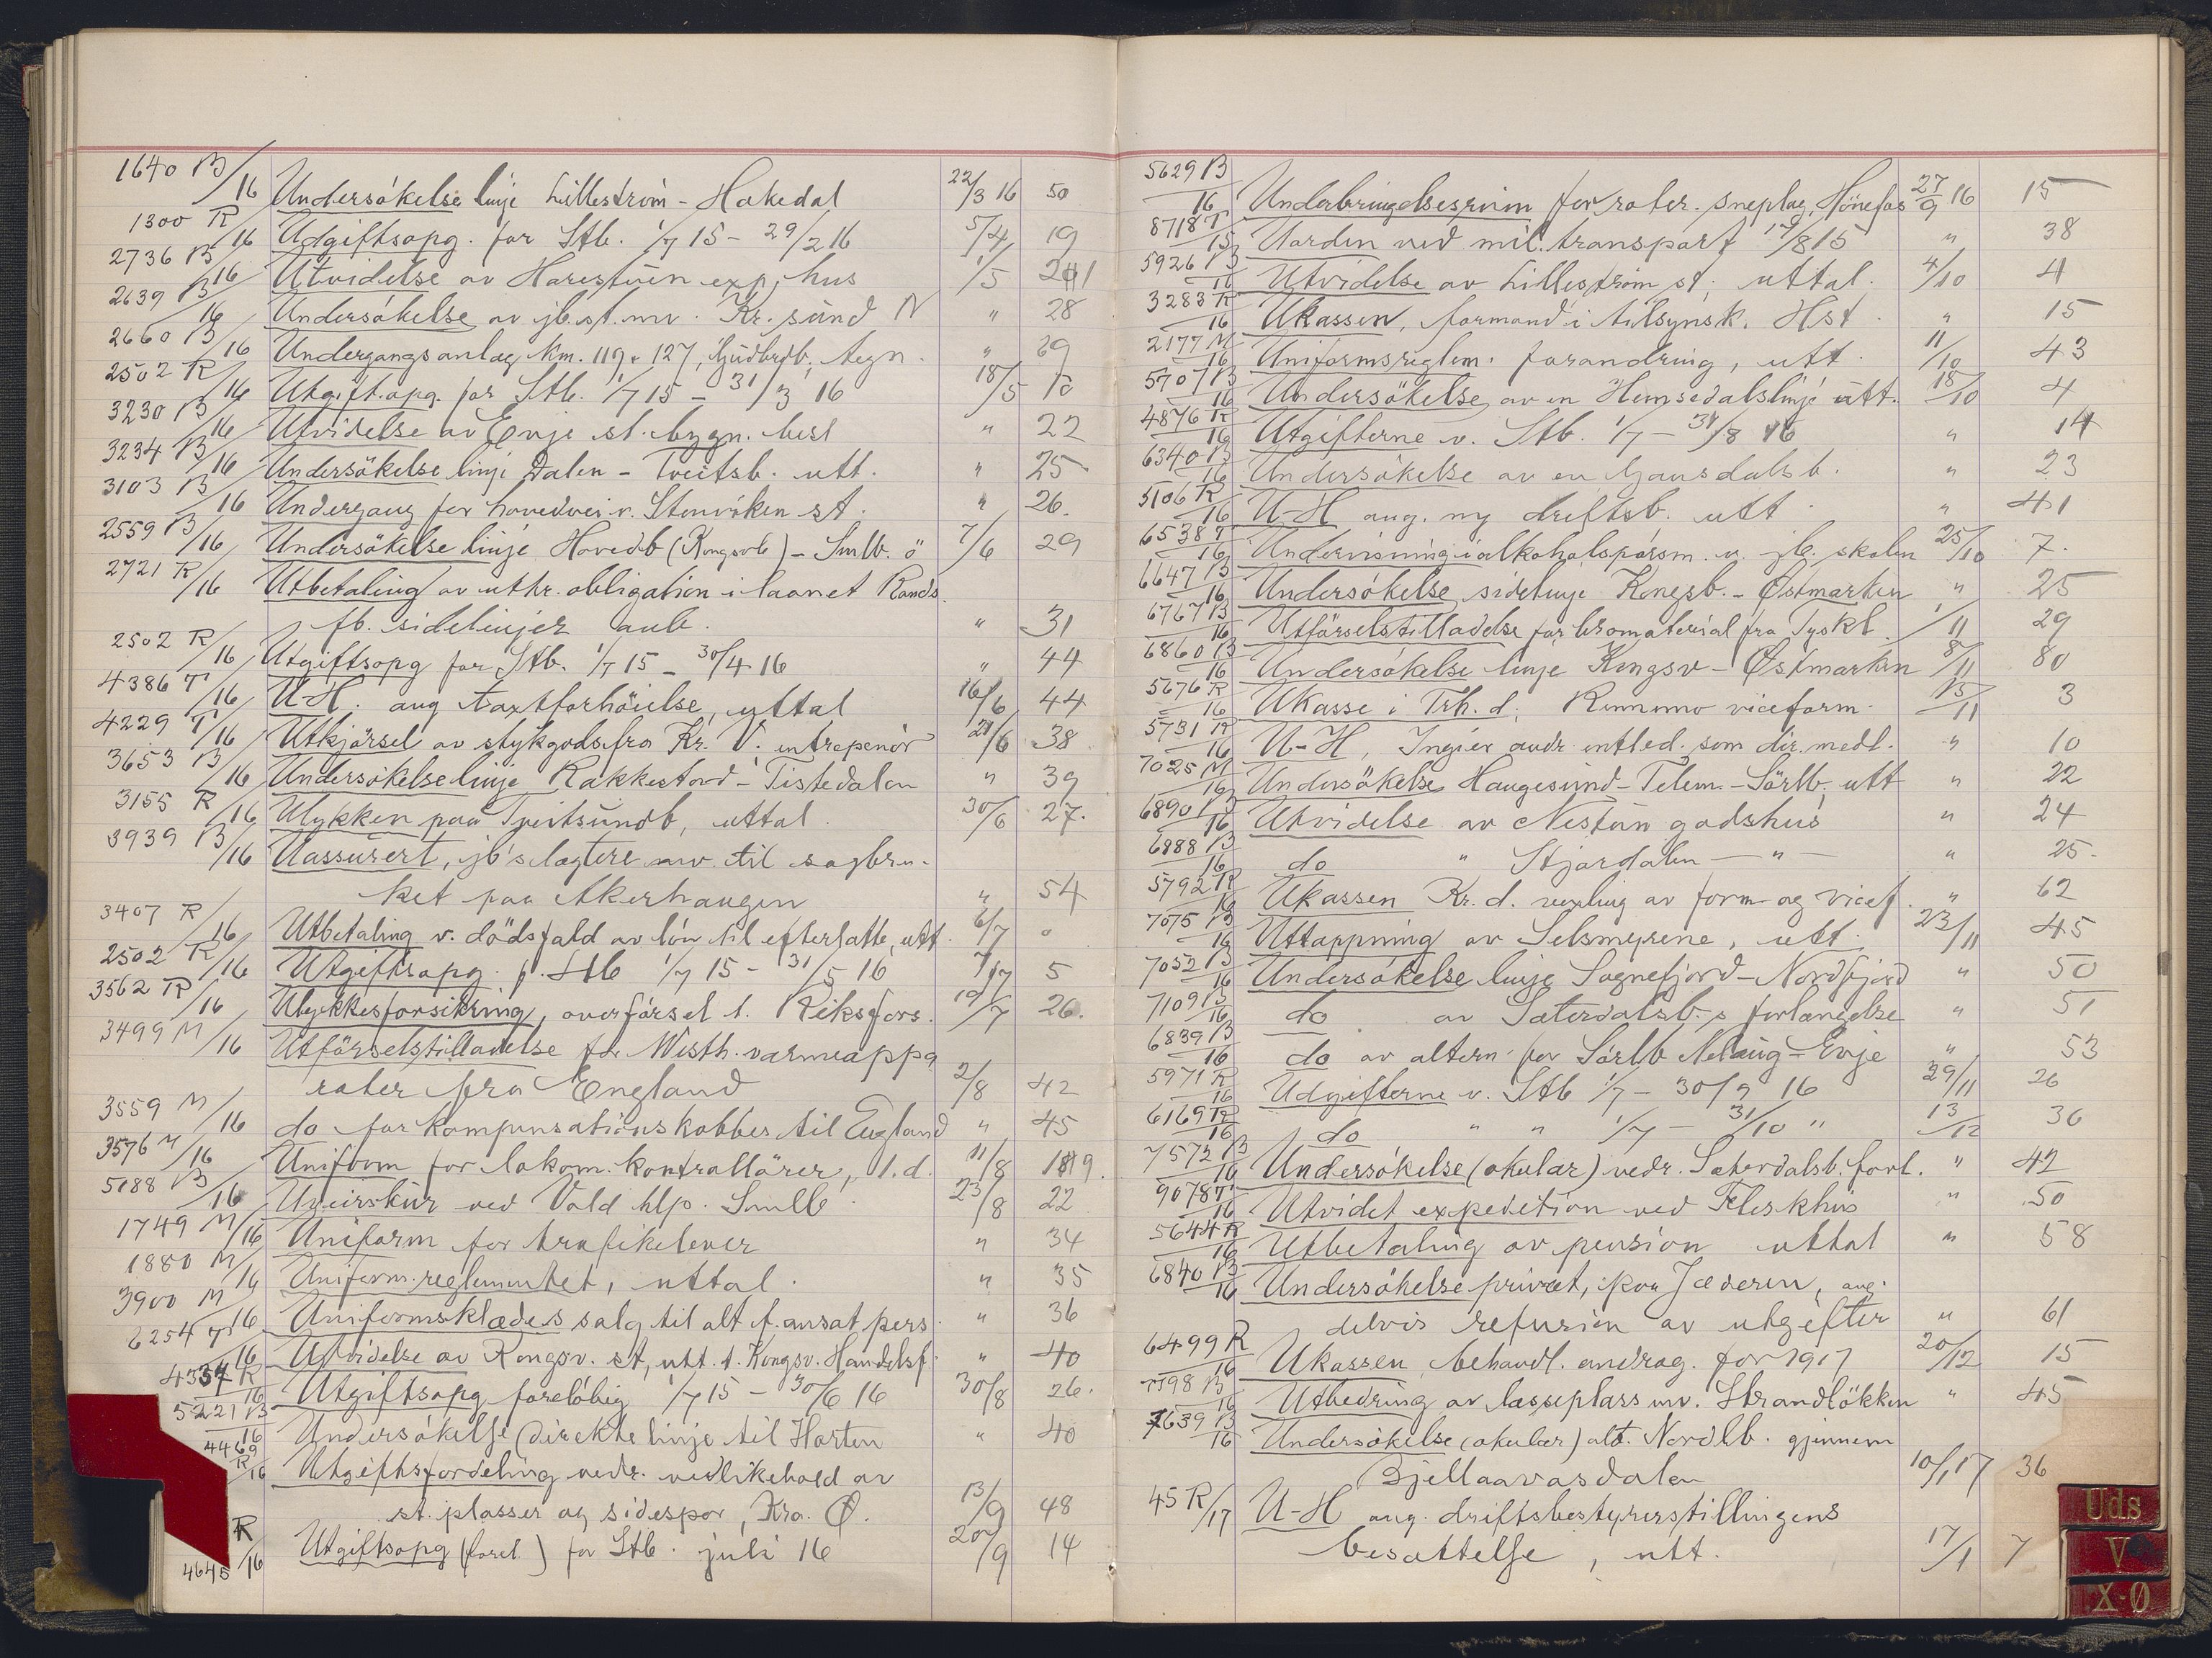 1640 B/16 Undersökelse linje Lilleström - Hakedal 22/3 16 50
1300 R/16 Udgiftsopg. for Stb. 1/7 15 - 29/2 16 5/4 19
2736 B/16 Utvidelse av Harestuen exp. hus 1/5
2639 B/16 Undersökelse av jb. st. mv. Kr. sund N " 28
2660 B/16 Undergangsanlæg km. 119 + 127, Gudbrdb. tegn. " 29
2502 R/16 Utgift.opg. for Stb. 1/7 15 - 31/3 16 18/5 10
3230 B/16 Utvidelse av Evje st. bygn. best " 22
3234 B/16 Undersökelse linje Dalen - Tveitsb. utt. " 25
3103 B/16 Undergang for hovedvei v. Stenviken st. " 26.
2559 B/16 Undersökelse linje Hovedb (Kongsvb) - Smlb. ö 7/6 29
2721 R/16 Utbetaling av uthr. obligation i laanet Rands.
fb. sidelinjer anb. " 31
2502 R/16 Utgiftsopg for Stb. 1/7 15 - 30/4 16 " 44
4386 T/16 U-H. ang taxtforhöielse, uttal 16/6 44
4229 T/16 Utkjörsel av stykgods fra Kr. V. entrepenör 21/6 38
3653 B/16 Undersökelse linje Rakkestad - Tistedalen " 39
3155 R/16 Ulykken paa Tveitsundb, uttal. 30/6 27.
3939 B/16 Uassurert, jb's lagtere mv. til sagbru-
ket paa Akerhaugen " 54
3407 R/16 Utbetaling v. dödsfald av lön til efterlatte, utt. 6/7
2502 R/16 Utgiftsopg. f. Stb 1/7 15 - 31/5 16 7/7 5
3562 R/16 Ulykkesforsikring, overförsel t. Riksfors. 19/7 26.
3499 M/16 Utförselstilladelse for Westh. varmeappa
rater fra England 2/8 42
3559 M/16 do for kompensationskobber til England " 45
3576 M/16 Uniform for lokom. kontrollörer, 1. d. 11/8
5188 B/16 Uveirskur ved Vold hlp. Smlb 23/8 22
1749 M/16 Uniform for trafikelever " 34
1880 M/16 Uniformsreglementet, uttal. " 35
3900 M/16 Uniformsklædes salg til alt f. ansat pers. " 36
6254 T/16 Utvidelse av Kongsv. st, utt. t. Kongsv. Handelsf. " 40
4334 R/16 Utgiftsopg forelöbig 1/7 15 - 30/6 16 30/8 26.
5221 B/16 Undersökelse direkte linje til Horten " 40
4469 R/16 Utgiftsfordeling vedr. vedlikehold av
st. plasser og sidespor, Kra. Ö. 13/9 48
R 4645/16 Utgiftsopg (forel.) for Stb. juli 16 20/9 14
5629 B/16 Underbringelsesrum for roter. sneplog, Hönefos 27/9 16 15
8718 T/15 Uorden ved mil. transport 15/8 15 " 38
5926 B/16 Utvidelse av Lilleström st, uttal. 4/10 4
3283 R/16 Ukassen, formand i tilsynsk. Hst. " 15
2177 M/16 Uniformsreglem. forandring, utt. 11/10 43
5707 B/16 Undersökelse av en Hemsedalslinje utt. 18/10 4
4876 R/16 Utgifterne v. Stb. 1/7 - 31/8 16 " 14
6340 B/16 Undersökelse av en Gausdalsb. " 23
5106 R/16 U-H ang. ny driftsb. utt. " 41
6538 T/16 Undervisning i alkoholspörsm. v. jb. skolen 25/10 7.
6647 B/16 Undersökelse, sidelinje Kongsb. - Østmarken " 25
6767 B/16 Utförselstilladelse for bromaterial fra Tyskl. 1/11 29
6860 B/16 Undersökelse linje Kongsv - Østmarken 8/11 80
5676 R/16 Ukasse i Trh. d; viceform. 15/11 3
5731 R/16 U-H, Ingier andr. entled. som dir. medl. " 10
7025 M/16 Undersökelse Haugesund - Telem. - Sörlb. utt " 22
6890 B/16 Utvidelse av Nestun godshus " 24
6888 B/16 do " Stjördalen - " - " 25.
5792 R/16 Ukassen Kr. d. vexling av form og vicef. " 62
7075 B/16 Uttapning av Selsmyrene, utt. 23/11 45
7052 B/16 Undersökelse linje Sognefjord - Nordfjord " 50
7109 B/16 do av Sæterdalsb.s forlængelse " 51
6839 B/16 do av altern. for Sörlb Nelaug - Evje " 53
5971 R/16 Udgifterne v. Stb 1/7 - 30/9 16 29/11 26
6169 R/16 do " " 1/7 - 31/10 " 13/12 36
7572 B/16 Undersökelse (okular) vedr. Sæterdalsb. forl. " 42
9078 T/16 Utvidet expedition ved Fleskhus " 50
5644 R/16 Utbetaling av pension uttal " 58
6840 B/16 Undersökelse privat, paa Jæderen, ang.
delvis refusion av utgifter " 61
6499 R/16 Ukassen, behandl. andrag. for 1917 20/12 15
7598 B/16 Utbedring av læsseplass mv. Strandlökken " 45
7639 B/16 Undersökelse (okulær) alt. Nordlb. gjennem
Bjellaavasdalen 10/1 17 36
45 R/17 U-H ang. driftsbestyrerstillingens
besættelse, utt. 17/1 7
Uds
V
X-Ø